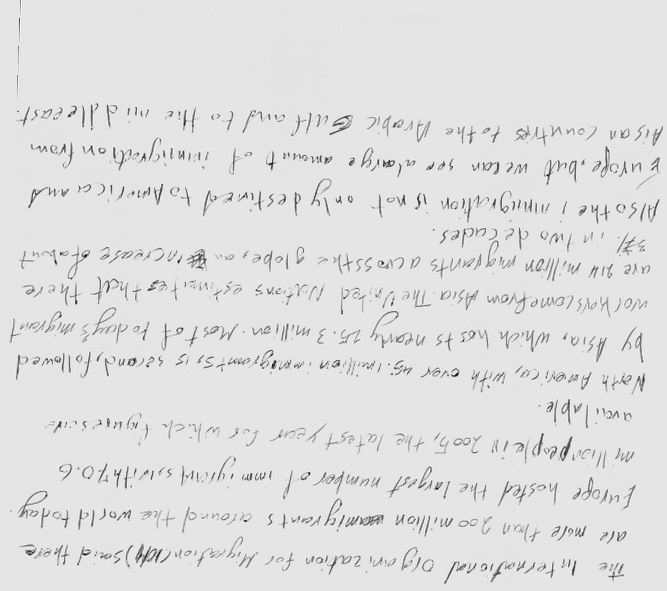 the International Organization for Migration (IOM) said there
are more than 200 million migrants around the world today.
Europe hosted the largest number of immigrants, with 70.6
million people in 2005, the latest year for which figures are
available.
North America, with over 45.1 million immigrants, is second, followed
by Asia, which hosts nearly 25.3 million. Most of today's migrant
workers come from Asia. The United Nations estimates that there
are 214 million migrants across the globe, an increase of about
37%. in two decades.
Also the immigration is not only destined to America and
Europe, but we can see a large amount of immigration from
Aisan countries to the Arabic Gulf and to the middle east.